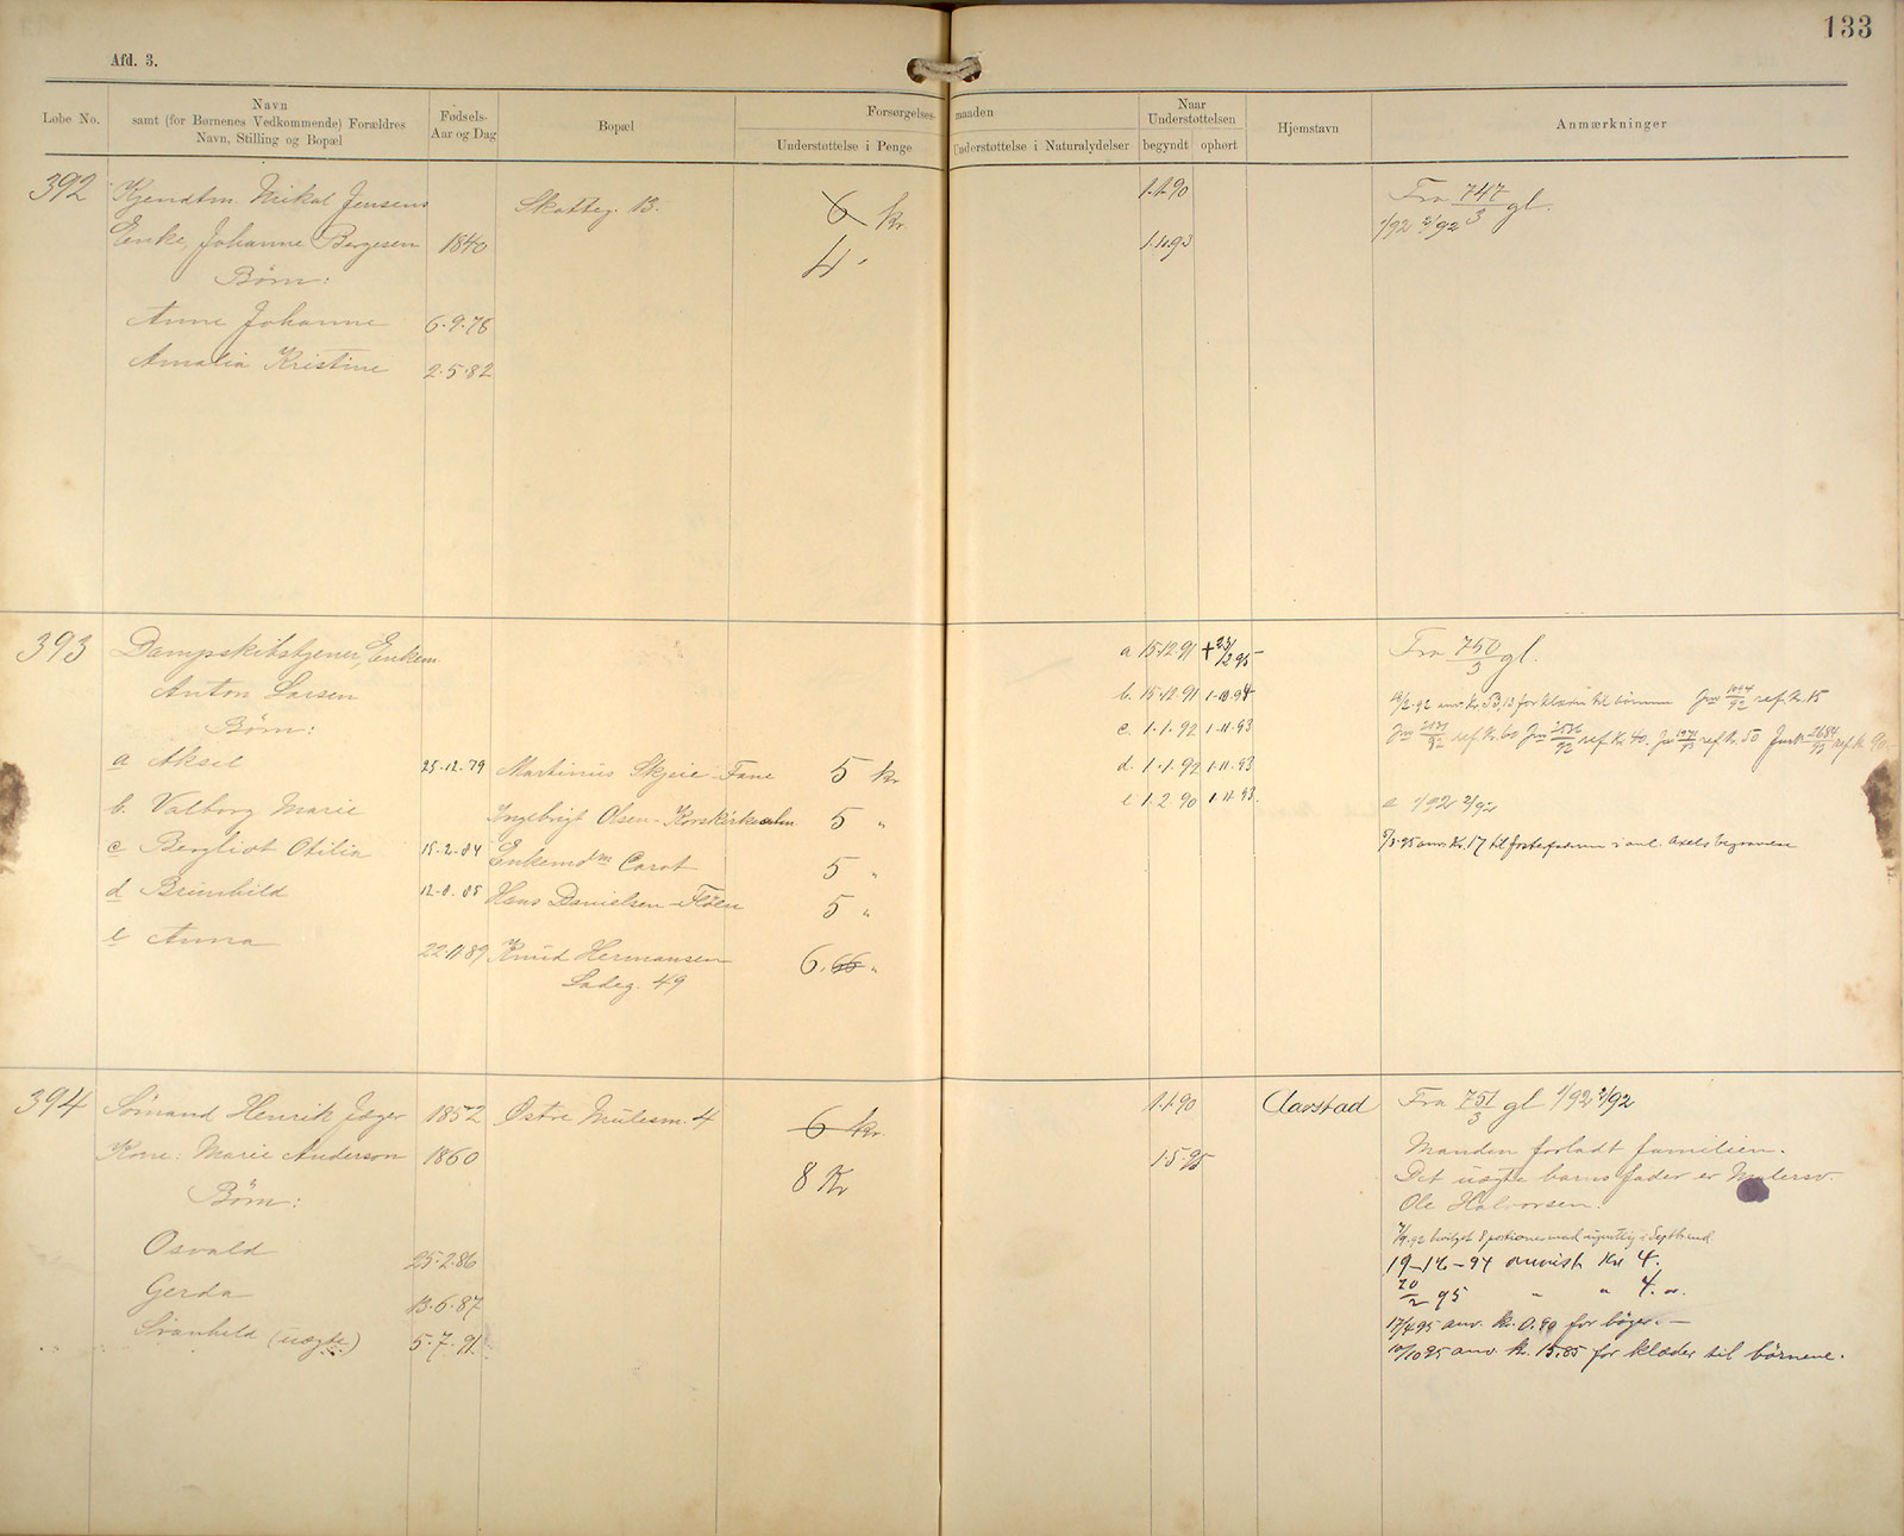 133
Afd. 3.
Løbe No.
Navn
samt (for Børnenes Vedkommende) Forældres
Navn, Stilling og Bopæl
Fødsels-
Aar og Dag
Bopæl
Forsørgelses-
maaden
Understøttelse i Penge
Understøttelse i Naturalydelser
Naar
Understøttelsen
begyndt
ophørt
Hjemstavn
Anmærkninger
392 Kjendtm. Nikal Jensens Skatteg. 13. 6 kr 1.1.90 Fra 747/3 gl.
Enke, Johanne Børgesen 1840 4 " 1.11.93 1/92 2/92
Børn:
Anne Johanne 6.9.76
Amalia Kristine 2.5.82
393 Dampskibstjener, Enkem. a 15.12.91 + 25/2 95 Fra 750/3 gl.
Anton Larsen b. 15.12.91 1.10.94
Børn: c. 1.1.92 1.11.93
a Aksel 25.12.79 Martinius Skjeie Fane 5 kr d. 1.1.92 1.11.93
b. Valborg Marie Ingebrigt Olsen - Korskirkealm. 5 " e 1.2.90 1.11.93. a 1/92 2/92
c Bergliot Otilia 15.2.84 Enkemdm Carot 5 " 5/3.95 anv. Kr. 17 til fosterfaderen i anl. Axels begravelse
d Brünhild 12.8.85 Hans Danielsen - Fløen 5 "
e Anna 22.11.89 Knud Hermansen 6.66 "
Ladeg. 49
394 Sømand Henrik Jæger 1852 Østre Mulesm. 4 6 kr. 1.1.90 Aarstad Fra 751/3 gl 1/92 2/92
Kone: Marie Anderson 1860 8 Kr 1.5.95 Manden forladt familien.
Børn: Det uægte barns fader er Malersv.
Ole Halvorsen.
Osvald 25.2.86
Gerda 13.6.87
Svanhild (uægte) 5.7.91.
19-12-94 anvist Kr 4.
20/2 95 " " 4. "
17/4 95 anv. kr. 0.90 for bøger. -
10/10 95 anv. kr. 15.85 for klæder til børnene.